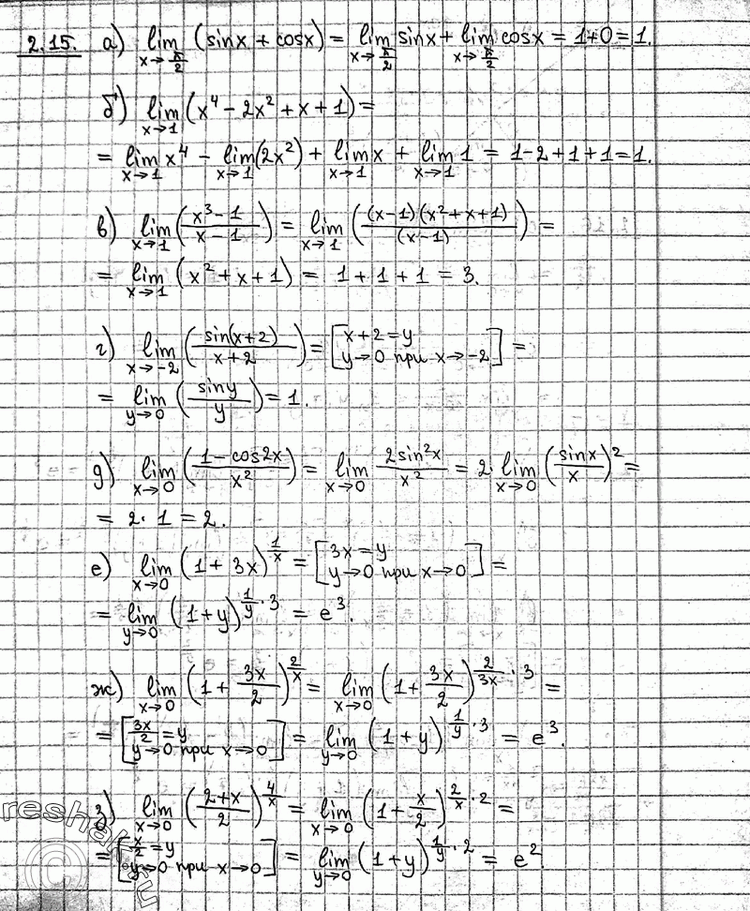 2.15. а) lim x→π/2 (sinx + cosx) = lim x→π/2 sinx + lim x→π/2 cosx = 1+0 = 1.
б) lim x→1 (x⁴ - 2x² + x + 1) =
= lim x→1 x⁴ - lim x→1 (2x²) + lim x→1 x + lim x→1 1 = 1-2+1+1 = 1.
в) lim x→1 ((x³-1)/(x-1)) = lim x→1 ((x-1)(x²+x+1)/(x-1)) =
= lim x→1 (x²+x+1) = 1+1+1 = 3.
г) lim x→-2 (sin(x+2)/(x+2)) = [x+2=y y→0 при x→-2] =
= lim y→0 (siny/y) = 1.
д) lim x→0 ((1-cos2x)/x²) = lim x→0 2sin²x/x² = 2·lim x→0 (sinx/x)² =
= 2·1 = 2.
е) lim x→0 (1+3x)^(1/x) = [3x=y y→0 при x→0] =
= lim y→0 (1+y)^(1/y·3) = e³.
ж) lim x→0 (1+3x/2)^(2/x) = lim x→0 (1+3x/2)^(2/3x·3) =
= [3x/2=y y→0 при x→0] = lim y→0 (1+y)^(1/y·3) = e³.
з) lim x→0 ((2+x)/2)^(4/x) = lim x→0 (1+x/2)^(2/x·2) =
= [x/2=y y→0 при x→0] = lim y→0 (1+y)^(1/y·2) = e².